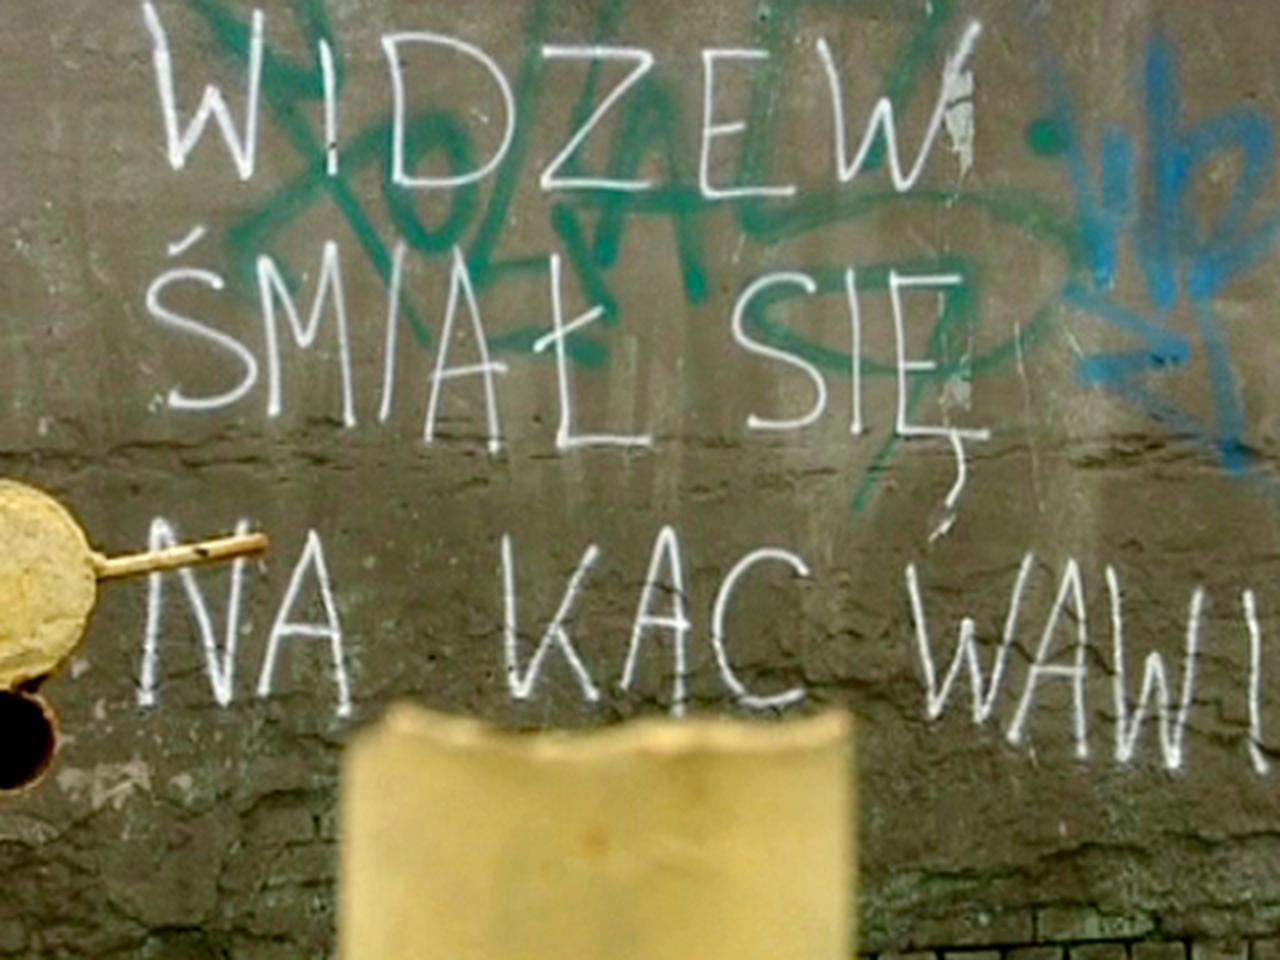 WIDZEW
ŚMIAŁ SIĘ
NA KAC WAWI